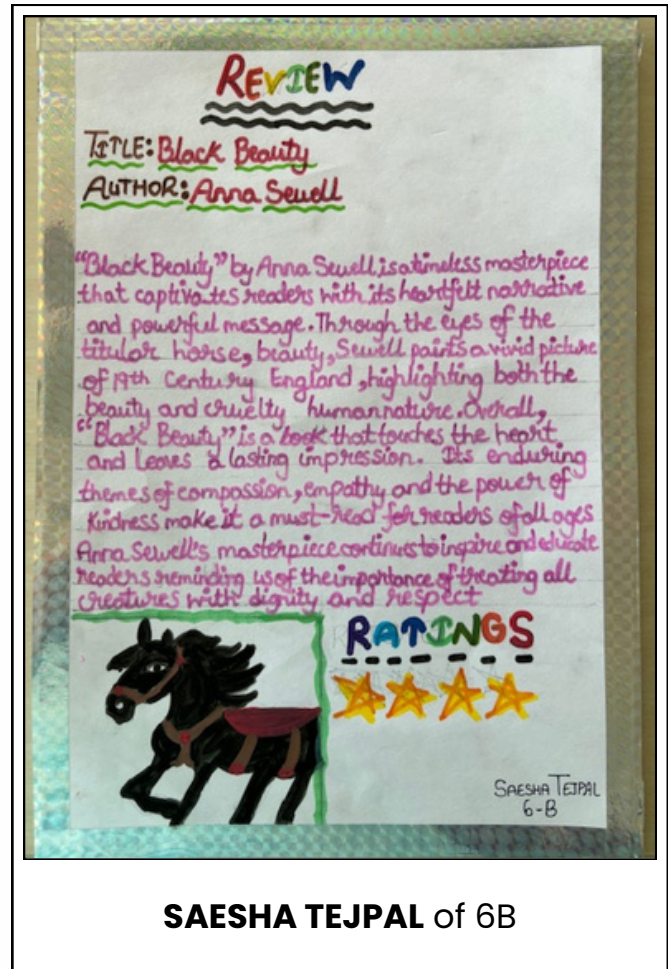 REVIEW
TITLE: Black Beauty
AUTHOR: Anna Sewell
"Black Beauty" by Anna Sewell is a timeless masterpiece
that captivates readers with its heartfelt narrative
and powerful message. Through the eyes of the
titular horse, beauty, Sewell paints a vivid picture
of 19th Century England, highlighting both the
beauty and cruelty human nature. Overall,
"Black Beauty" is a book that touches the heart
and leaves a lasting impression. Its enduring
themes of compassion, empathy and the power of
kindness make it a must-read for readers of all ages
Anna Sewell's masterpiece continues to inspire and educate
readers reminding us of the importance of treating all
creatures with dignity and respect
RATINGS
SAESHA TEJPAL
6-B
SAESHA TEJPAL of 6B